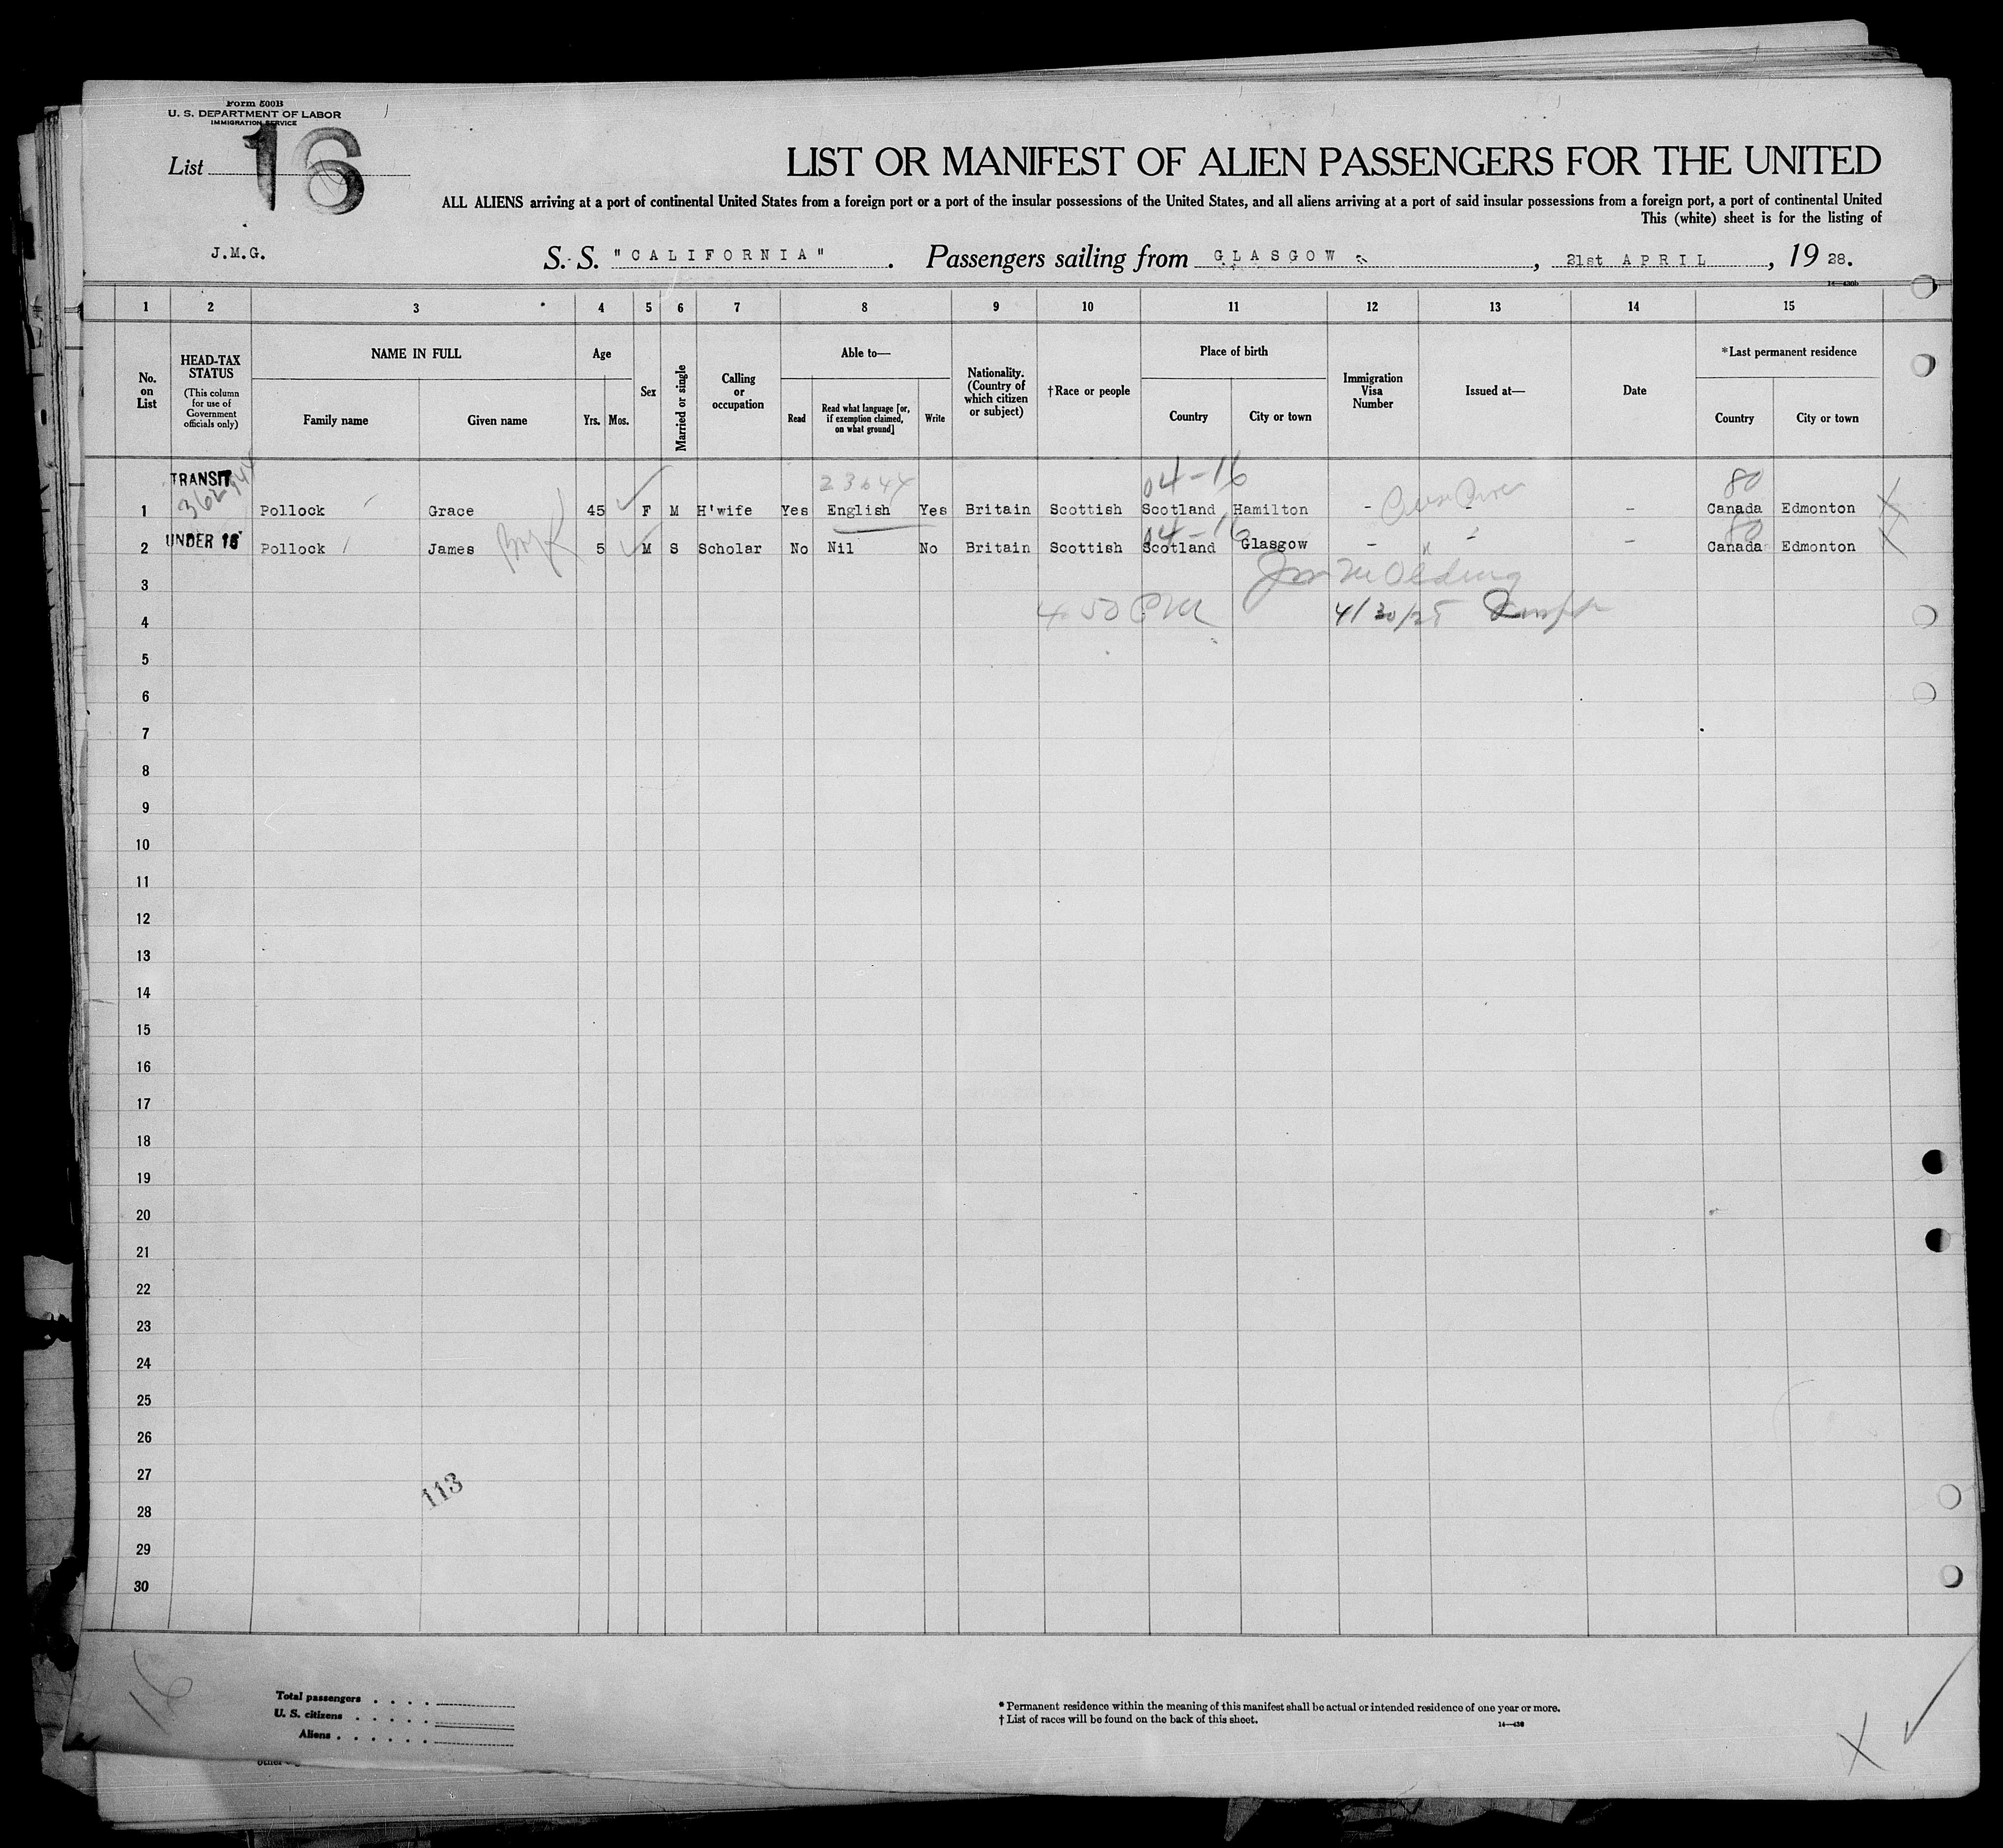 Form 500B
U. S. DEPARTMENT OF LABOR
IMMIGRATION SERVICE
List 16
LIST OR MANIFEST OF ALIEN PASSENGERS FOR THE UNITED
ALL ALIENS arriving at a port of continental United States from a foreign port or a port of the insular possessions of the United States, and all aliens arriving at a port of said insular possessions from a foreign port, a port of continental United
This (white) sheet is for the listing of
J.M.G. S. S. "CALIFORNIA". Passengers sailing from GLASGOW, 21st APRIL, 1928.
14—430b
1 2 3 4 5 6 7 8 9 10 11 12 13 14 15
No. on List
HEAD-TAX STATUS
(This column for use of Government officials only)
NAME IN FULL
Family name Given name
Age
Yrs. Mos.
Sex
Married or single
Calling or occupation
Able to—
Read
Read what language [or, if exemption claimed, on what ground]
Write
Nationality. (Country of which citizen or subject)
†Race or people
Place of birth
Country City or town
Immigration Visa Number
Issued at—
Date
*Last permanent residence
Country City or town
TRANSIT 23644 04-16 80
1 Pollock Grace 45 F M H'wife Yes English Yes Britain Scottish Scotland Hamilton - - - Canada Edmonton X
UNDER 16 04-16 80
2 Pollock James 5 M S Scholar No Nil No Britain Scottish Scotland Glasgow - - - Canada Edmonton
3
4 4/30/28
5
6
7
8
9
10
11
12
13
14
15
16
17
18
19
20
21
22
23
24
25
26
27
113
28
29
30
16
Total passengers . . . .
U. S. citizens . . . . .
Aliens . . . . . .
* Permanent residence within the meaning of this manifest shall be actual or intended residence of one year or more.
† List of races will be found on the back of this sheet.
14—430
X
other